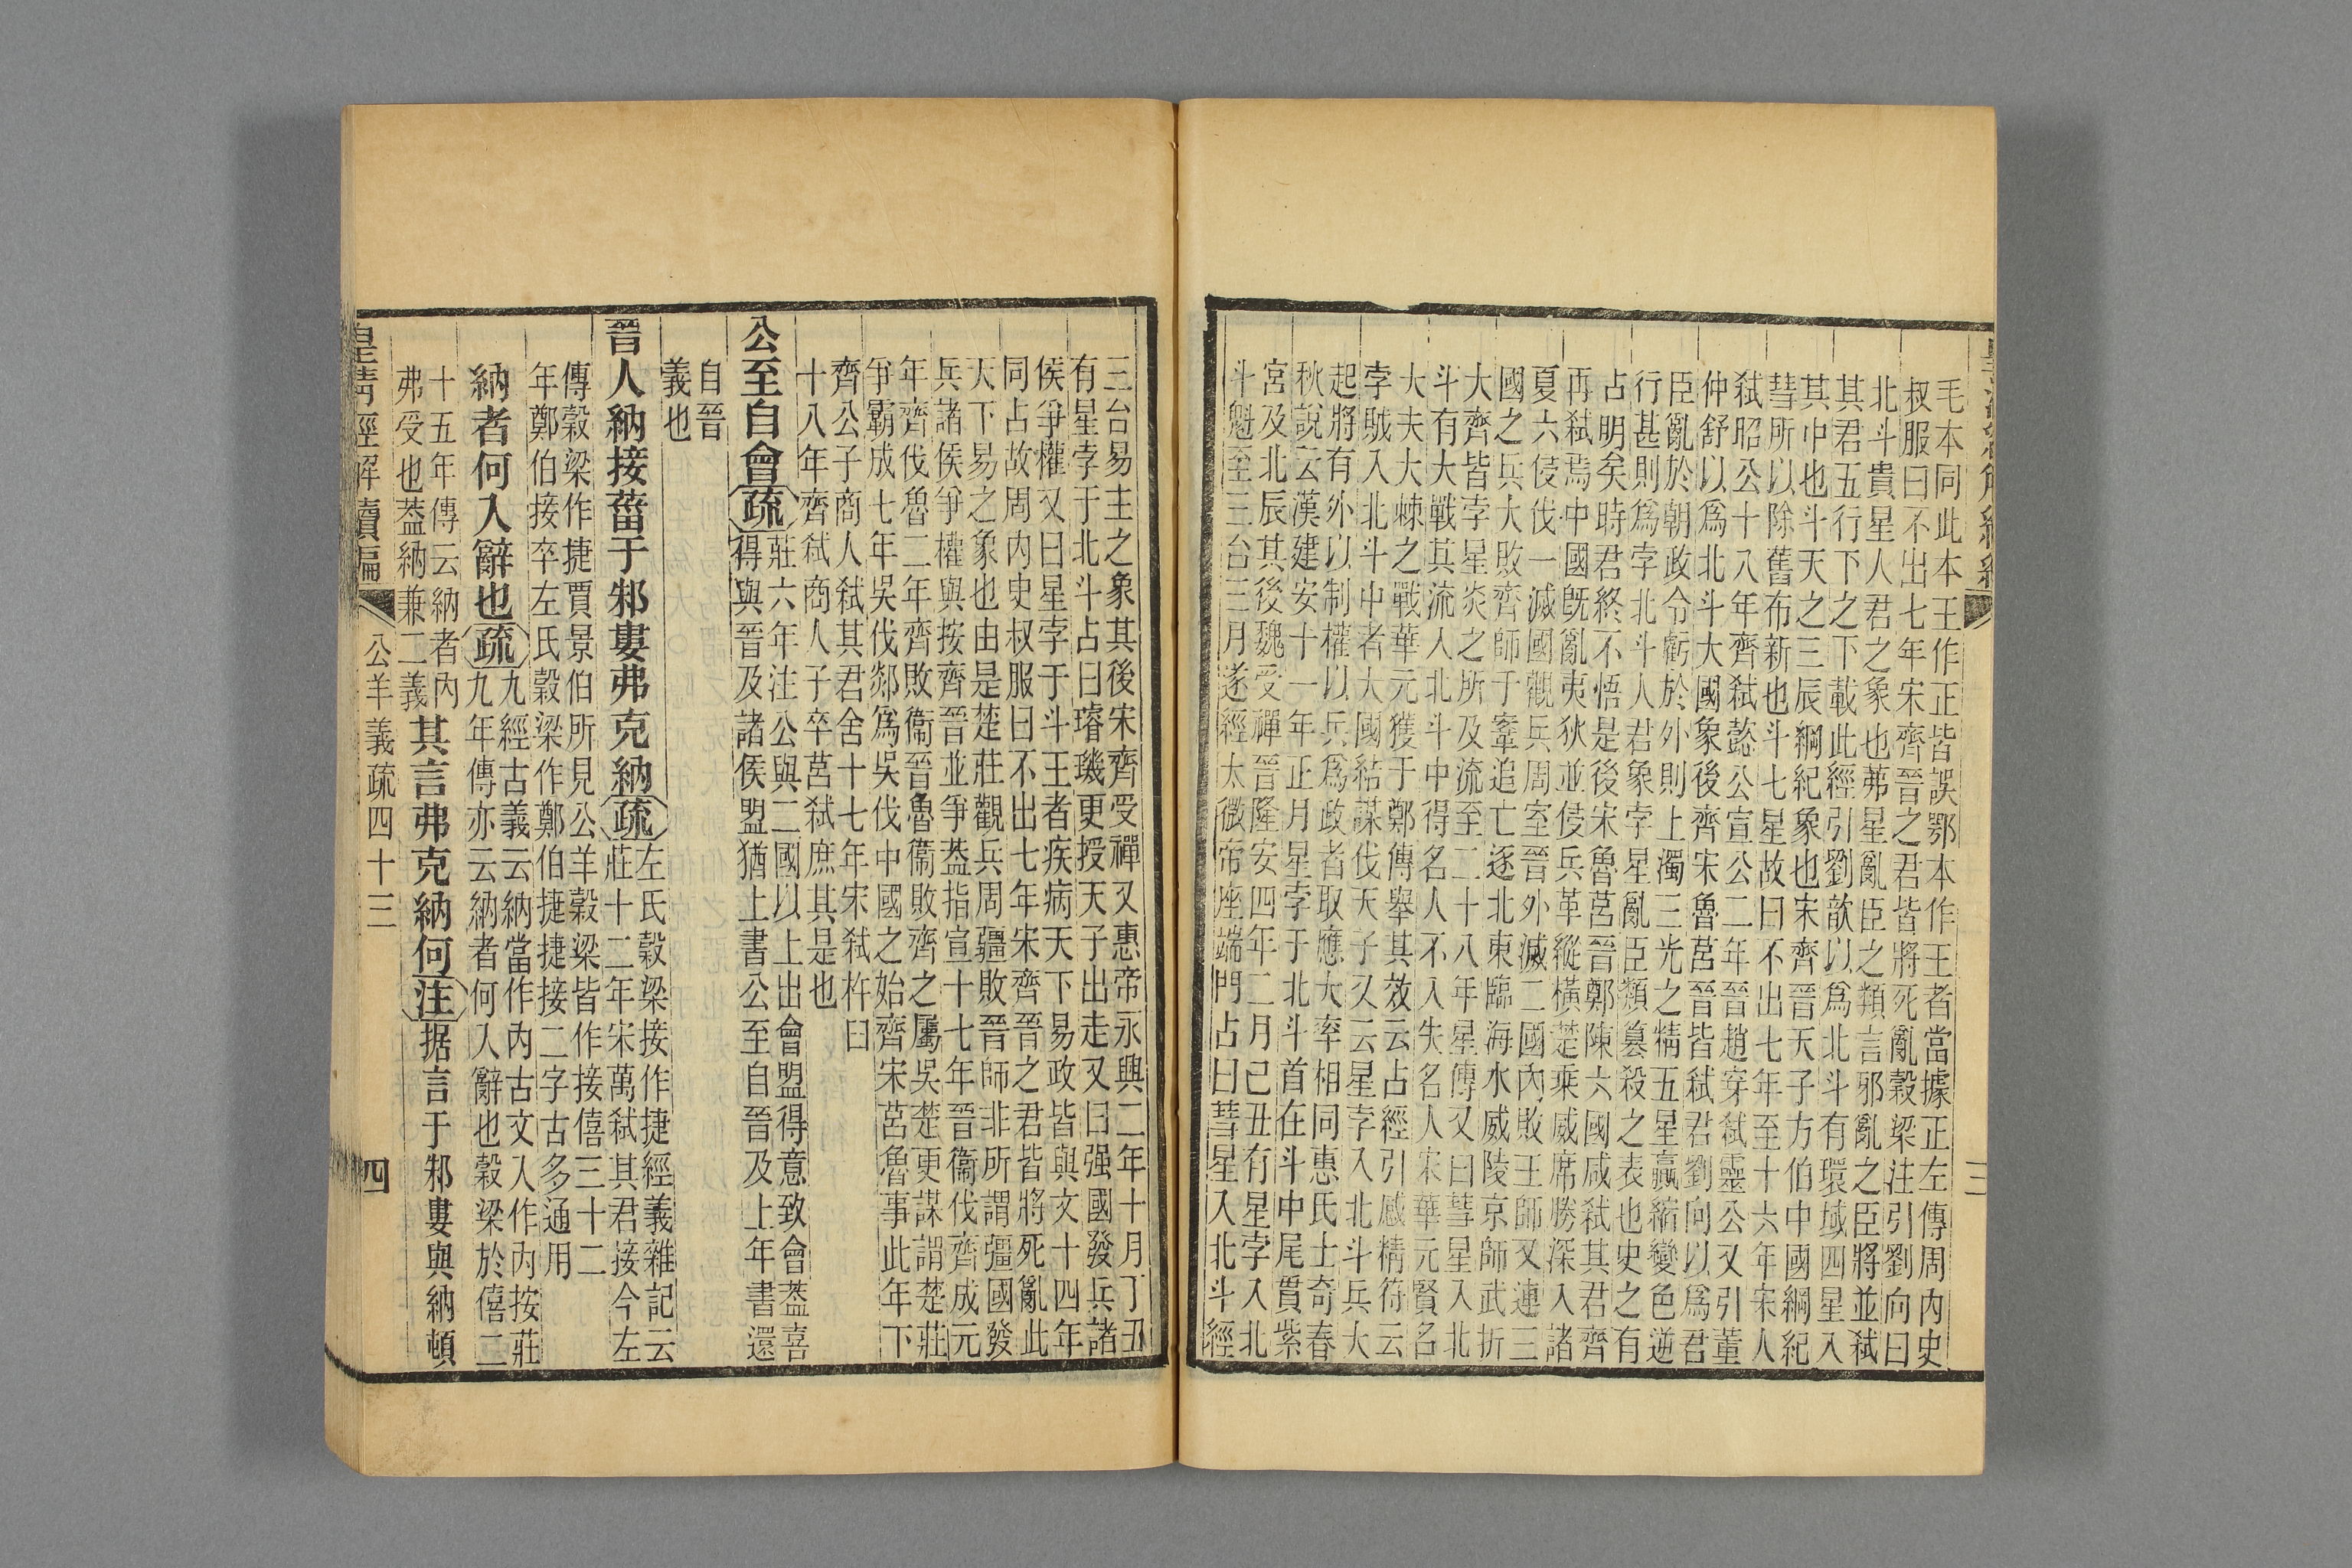 毛本同此本王作正皆誤鄂本作王者當據正左傳周內史
叔服曰不出七年宋齊晉之君皆將死亂穀梁注引劉向曰
北斗貴星人君之象也茀星亂臣之類言邪亂之臣將並弒
其君五行下之下載此經引劉歆以爲北斗有環域四星入
其中也斗天之三辰綱紀象也宋齊晉天子方伯中國綱紀
彗所以除舊布新也斗七星故曰不出七年至十六年宋人
弒昭公十八年齊弒懿公宣公二年晉趙穿弒靈公又引董
仲舒以爲北斗大國象後齊宋魯莒晉皆弒君劉向以爲君
臣亂於朝政令虧於外則上濁三光之精五星贏縮變色逆
行甚則爲孛北斗人君象孛星亂臣類篡殺之表也史之有
占明矣時君終不悟是後宋魯莒晉鄭陳六國咸弒其君齊
再弒焉中國旣亂夷狄並侵兵革縱橫楚乘威席勝深入諸
夏六侵伐一滅國觀兵周室晉外滅二國內敗王師又連三
國之兵大敗齊師于鞌追亡逐北東臨海水威陵京師武折
大齊皆孛星炎之所及流至二十八年星傳又曰彗星入北
斗有大戰其流入北斗中得名人不入失名人宋華元賢名
大夫大棘之戰華元獲于鄭傳舉其效云占經引感精符云
孛賊入北斗中者大國結謀伐天子又云星孛入北斗兵大
起將有外以制權以兵爲政者取應大率相同惠氏士奇春
秋說云漢建安十一年正月星孛于北斗首在斗中尾貫紫
宮及北辰其後魏受禪晉隆安四年二月己丑有星孛入北
斗魁至三台三月遂經太微帝座端門占曰彗星入北斗經
三
三台易主之象其後宋齊受禪又惠帝永興二年十月丁丑
有星孛于北斗占曰璿璣更授天子出走又曰强國發兵諸
侯爭權又曰星孛于斗王者疾病天下易政皆與文十四年
同占故周內史叔服曰不出七年宋齊晉之君皆將死亂此
天下易之象也由是楚莊觀兵周疆敗晉師非所謂彊國發
兵諸侯爭權與按齊晉並爭葢指宣十七年晉衞伐齊成元
年齊伐魯二年齊敗衞晉魯衞敗齊之屬吳楚更謀謂楚莊
爭霸成七年吳伐郯爲吳伐中國之始齊宋莒魯事此年下
齊公子商人弒其君舍十七年宋弒杵臼
十八年齊弒商人子卒莒弒庶其是也
公至自會疏莊六年注公與二國以上出會盟得意致會葢喜
得與晉及諸侯盟猶上書公至自晉及上年書還
自晉
義也
晉人納接菑于邾婁弗克納疏左氏穀梁接作捷經義雜記云
莊十二年宋萬弒其君接今左
傳穀梁作捷賈景伯所見公羊穀梁皆作接僖三十二
年鄭伯接卒左氏穀梁作鄭伯捷捷接二字古多通用
納者何入辭也疏九經古義云納當作內古文入作內按莊
九年傳亦云納者何入辭也穀梁於僖二
十五年傳云納者內
弗受也葢納兼二義其言弗克納何注据言于邾婁與納頓
皇清經解續編
公羊義疏四十三
四